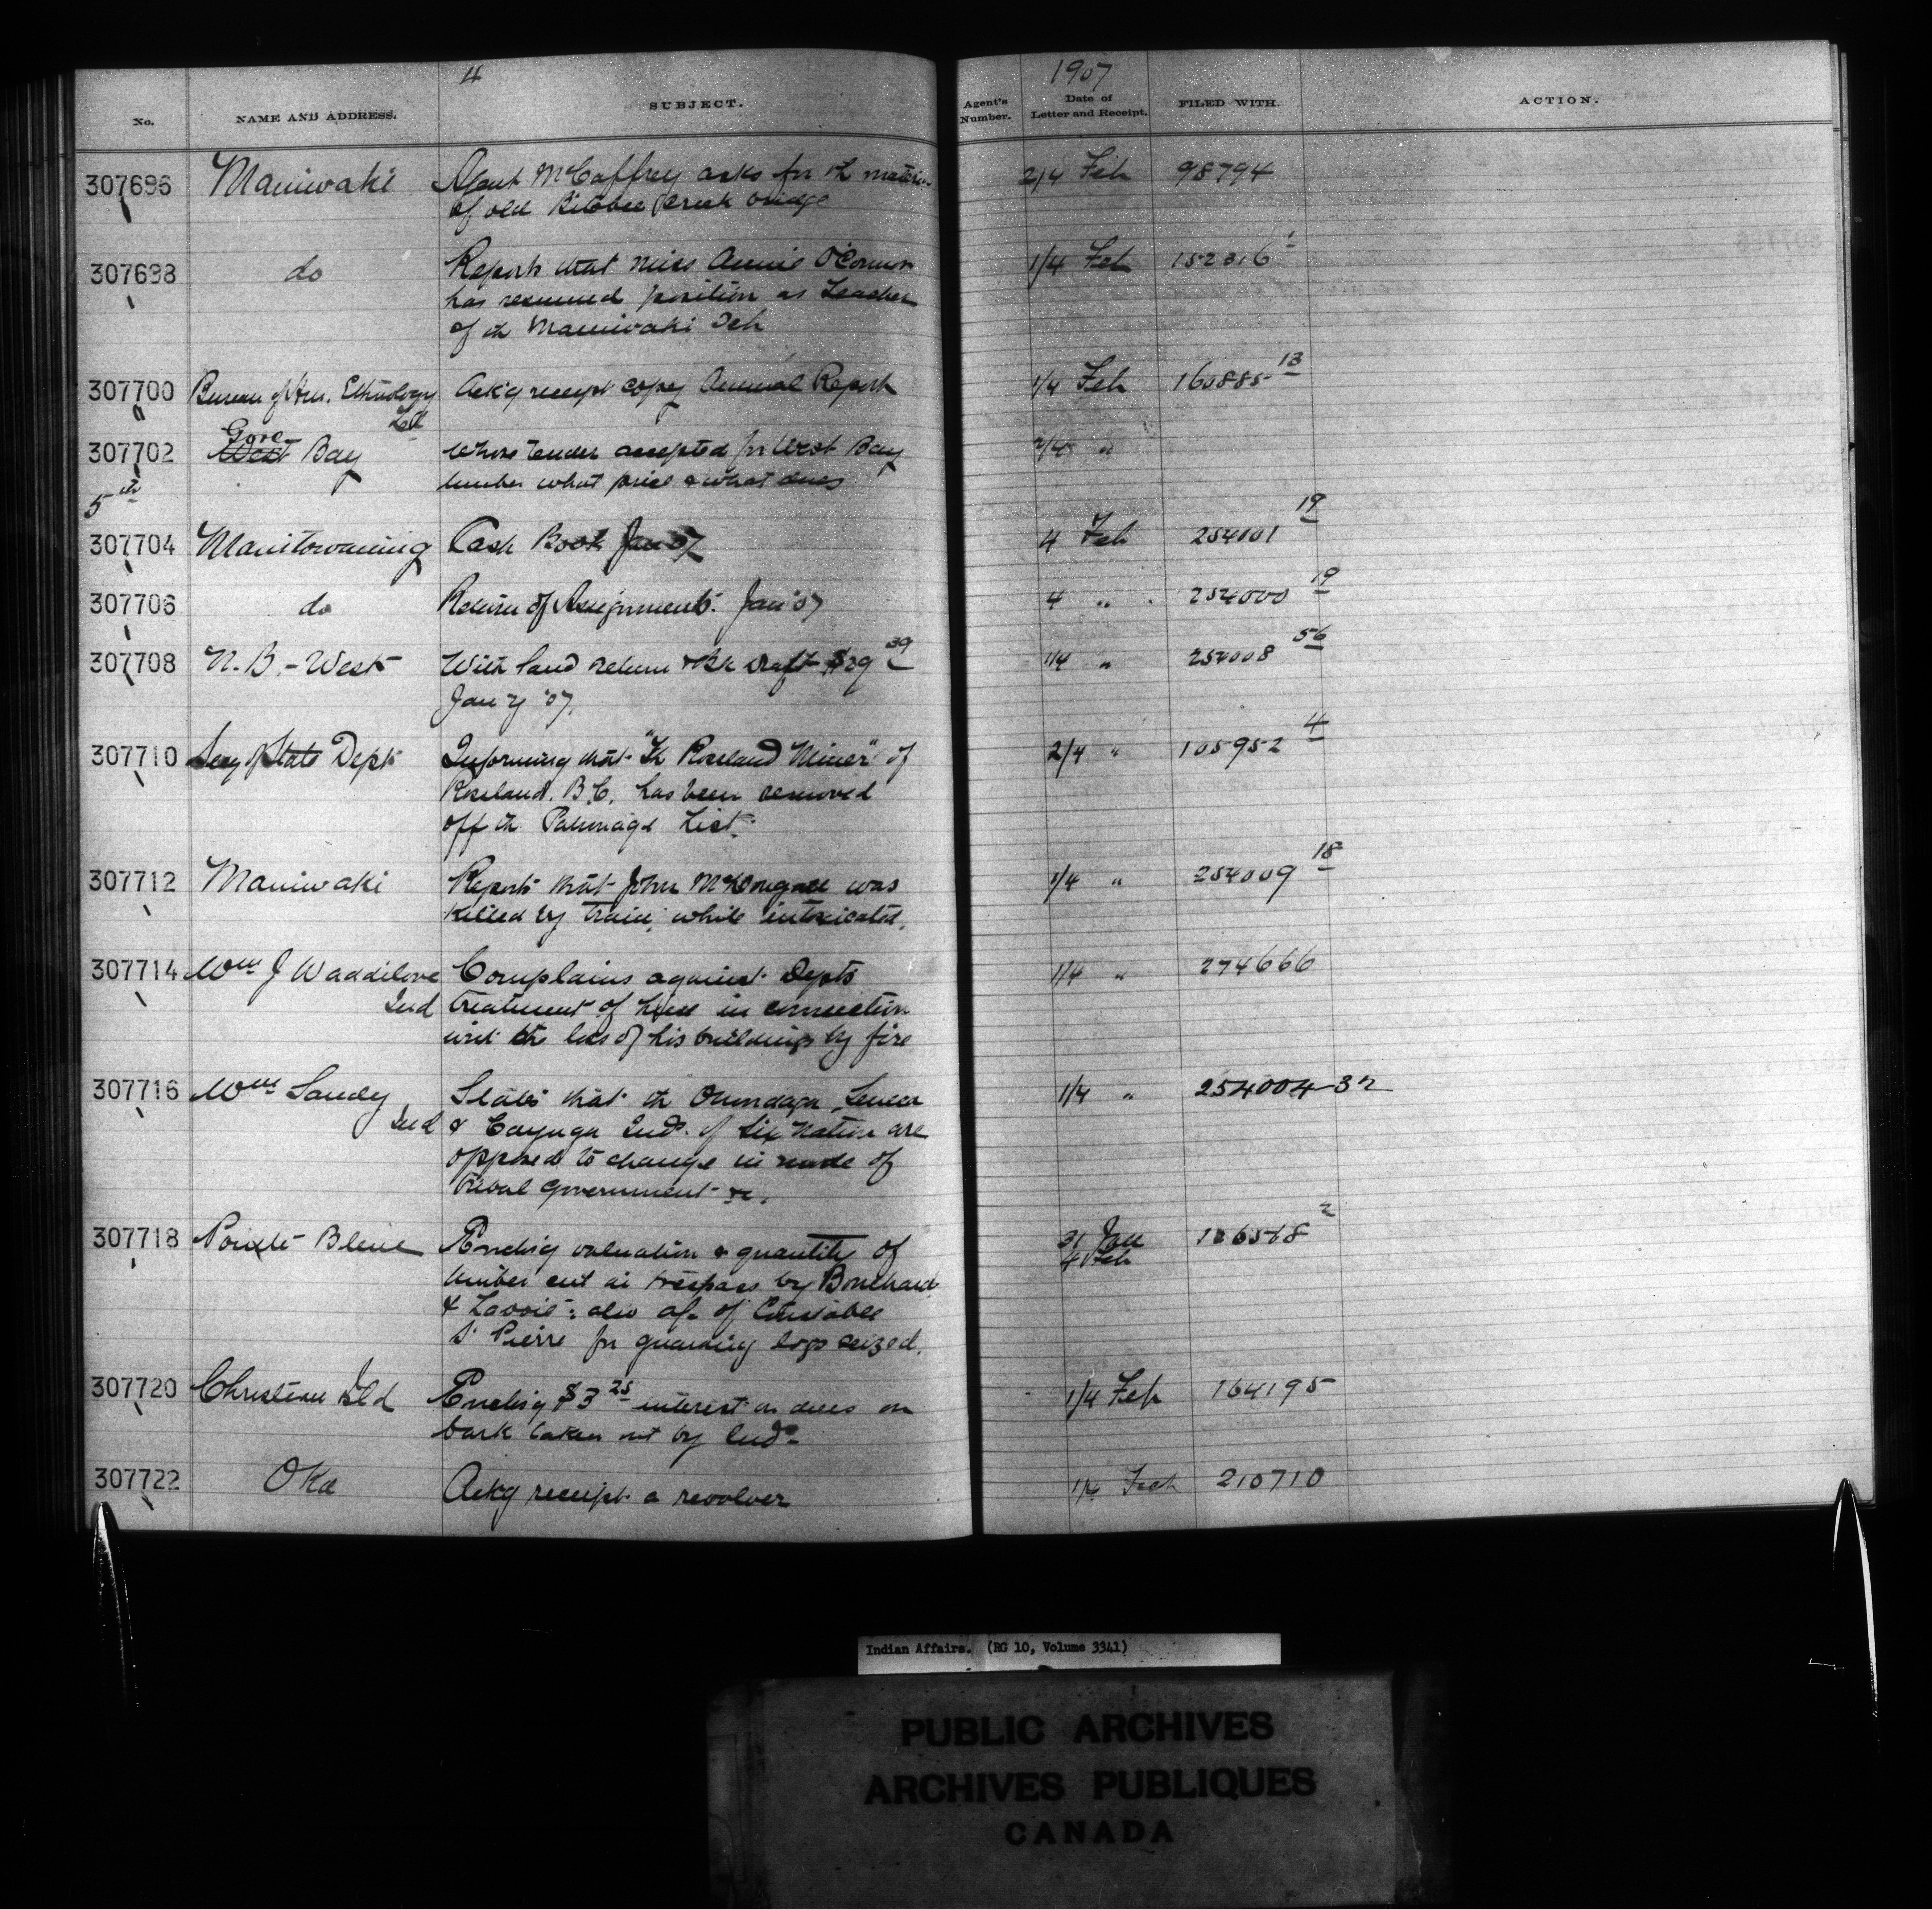 4
1907
No. NAME AND ADDRESS. SUBJECT. Agent's Number. Date of Letter and Receipt. FILED WITH. ACTION.
307696 Maniwaki Agent McCaffrey asks for th materi- 2/4 Feb 98794
of old Bitobee Creek bridge
307698 do Reports that Miss Annie O'Connor 1/4 Feb 152316 1
has resumed position as Teacher
of th Maniwaki Sch
307700 Bureau of Am. Ethnology Ack'g receipt copy Annual Report 1/4 Feb 160885 13
Gore
307702 West Bay Whose tender accepted for West Bay 2/4 "
timber what price & what dues
5th
307704 Manitowaning Cash Book Jan 07 4 Feb 254001 19
307706 do Return of Assignments. Jan '07 4 " 254000 19
307708 N. B. - West With land return & Bk draft $29 39 1/4 " 254008 56
Jany '07.
307710 Secy of State Dept Informing that "Th Rossland Miner" of 2/4 " 105952 4
Rossland. B.C. has been removed
off th Patronage List.
307712 Maniwaki Reports that John McDougall was 1/4 " 254009 18
killed by train, while intoxicated.
307714 Wm J Waddilove Complains against Depts 1/4 " 274666
Ind treatment of him in connection
with the loss of his buildings by fire
307716 Wm Sandy States that th Onondaga, Seneca 1/4 " 254004-32
Ind & Cayuga Inds. of Six Nation are
opposed to change in mode of
tribal government &c.
307718 Pointe Bleue Enclos'g valuation & quantity of 31 Jan 4 Feb 136568 2
timber cut in trespass by Bouchard
& Lavoie: also a/c of Constable
St Pierre for guarding logs seized.
307720 Christian Isld Enclos'g $3 25 interest on dues on 1/4 Feb 164195
bark taken out by Inds
307722 Oka Ackg receipt a revolver 1/4 Feb 210710
Indian Affairs. (RG 10, Volume 3341)
PUBLIC ARCHIVES
ARCHIVES PUBLIQUES
CANADA